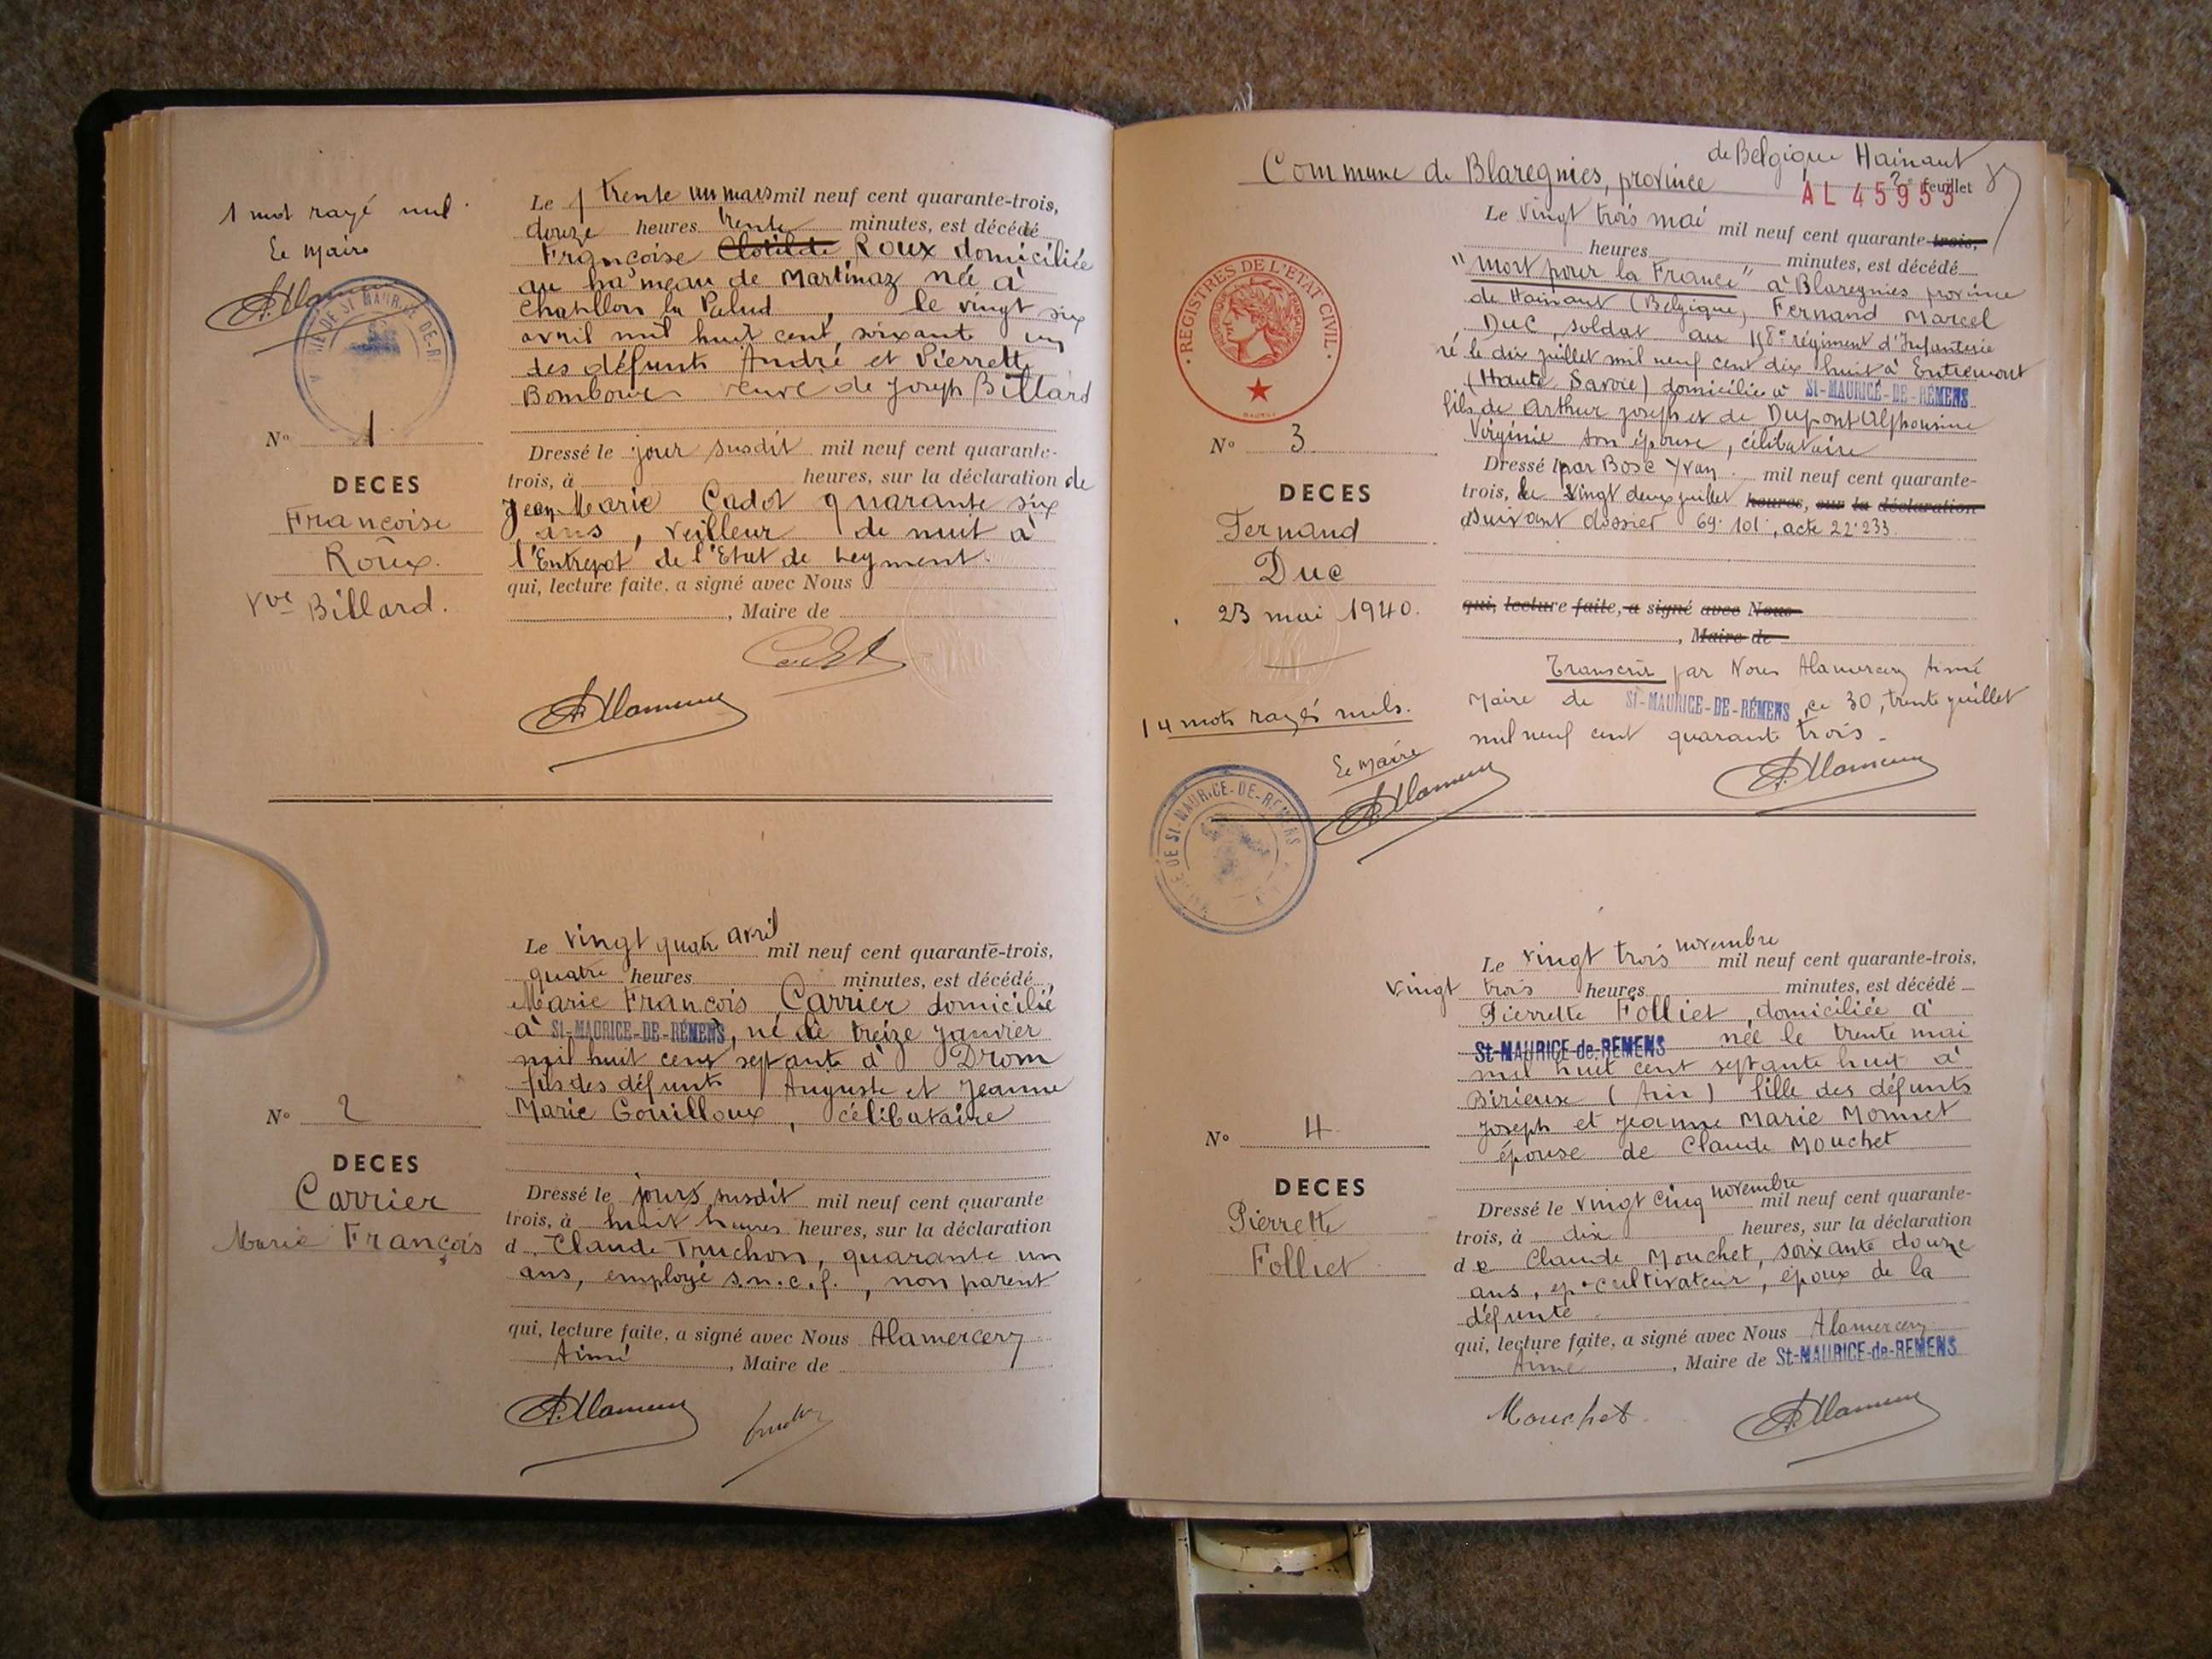 1 mot rayé nul.
Le Maire
Le trente un mars mil neuf cent quarante-trois,
douze heures trente minutes, est décédé
Françoise Clotilde Roux domiciliée
au hameau de Martinaz née à
Chatillon la Palud, le vingt six
avril mil huit cent soixante un
des défunts André et Pierrette
veuve de Joseph Billard
N° 1
DECES
Françoise
Roux.
Vve Billard.
Dressé le jour susdit mil neuf cent quarante-
trois, à heures, sur la déclaration de
Jean Marie Cadot quarante six
ans, veilleur de nuit à
l'Entrepot de l'Etat de Leyment.
qui, lecture faite, a signé avec Nous
, Maire de
Le vingt quatre avril mil neuf cent quarante-trois,
quatre heures minutes, est décédé
Marie François Carrier domicilié
à ST-MAURICE-DE-RÉMENS, né le treize janvier
mil huit cent septante à Drom
fils des défunts Auguste et Jeanne
Marie Gouilloux, célibataire
N° 2
DECES
Carrier
Marie François
Dressé le jours susdit mil neuf cent quarante
trois, à huit heures heures, sur la déclaration
d Claude Truchon, quarante un
ans, employé s.n.c.f., non parent
qui, lecture faite, a signé avec Nous Alamercery
Aimé, Maire de
de Belgique Hainaut
Commune de Blaregnies, province
AL 45953
2e feuillet
Le vingt trois mai mil neuf cent quarante-trois,
heures minutes, est décédé
"mort pour la France" à Blaregnies province
de Hainaut (Belgique) Fernand Marcel
Duc, soldat au 158e régiment d'Infanterie
né le dix juillet mil neuf cent dix huit à Entremont
(Haute Savoie) domicilié à ST-MAURICE-DE-RÉMENS
fils de Arthur Joseph et de Dupont Alphonsine
Virginie son épouse, célibataire
REGISTRES DE L'ETAT CIVIL
N° 3
DECES
Fernand
Duc
23 mai 1940.
Dressé par Bosc Yvan mil neuf cent quarante-
trois, le vingt deux juillet heures, sur la déclaration
d suivant dossier 69.101, acte 22.233.
qui, lecture faite, a signé avec Nous
, Maire de
Transcrit par Nous Alamercery Aimé
Maire de ST-MAURICE-DE-RÉMENS, ce 30, trente juillet
mil neuf cent quarante trois.
14 mots rayés nuls.
Le Maire
Le vingt trois novembre mil neuf cent quarante-trois,
vingt trois heures minutes, est décédé
Pierrette Folliet, domiciliée à
St-MAURICE-de-REMENS née le trente mai
mil huit cent septante huit à
Birieux (Ain) fille des défunts
Joseph et Jeanne Marie Monnet
épouse de Claude Mouchet
N° 4
DECES
Pierrette
Folliet
Dressé le vingt cinq novembre mil neuf cent quarante-
trois, à dix heures, sur la déclaration
de Claude Mouchet, soixante douze
ans, cultivateur, époux de la
défunte
qui, lecture faite, a signé avec Nous Alamercery
Aimé, Maire de St-MAURICE-de-REMENS
Mouchet